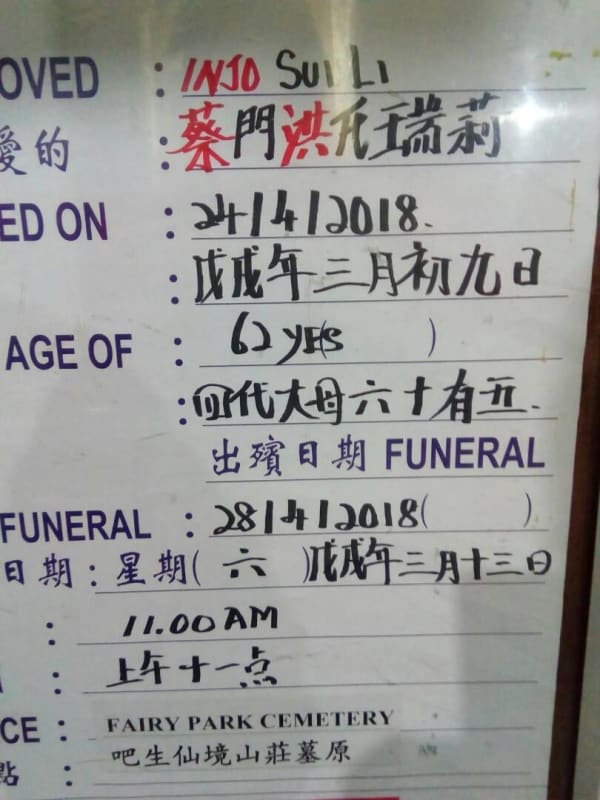 OVED : INJO SUI LI
愛的 : 蔡門洪氏瑞莉
ED ON : 24/4/2018.
: 戊戌年三月初九日
AGE OF : 62 YE( )
: 四代大母六十有五.
出殯日期 FUNERAL
FUNERAL : 28/4/2018( )
日期 : 星期( 六 )戊戌年三月十三日
: 11.00 AM
: 上午十一点
CE : FAIRY PARK CEMETERY
點 : 吧生仙境山莊墓原